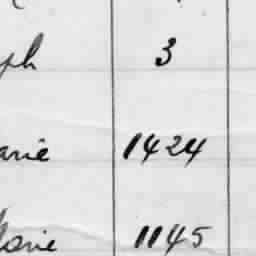 ph 3
arie 1424
sie 1145